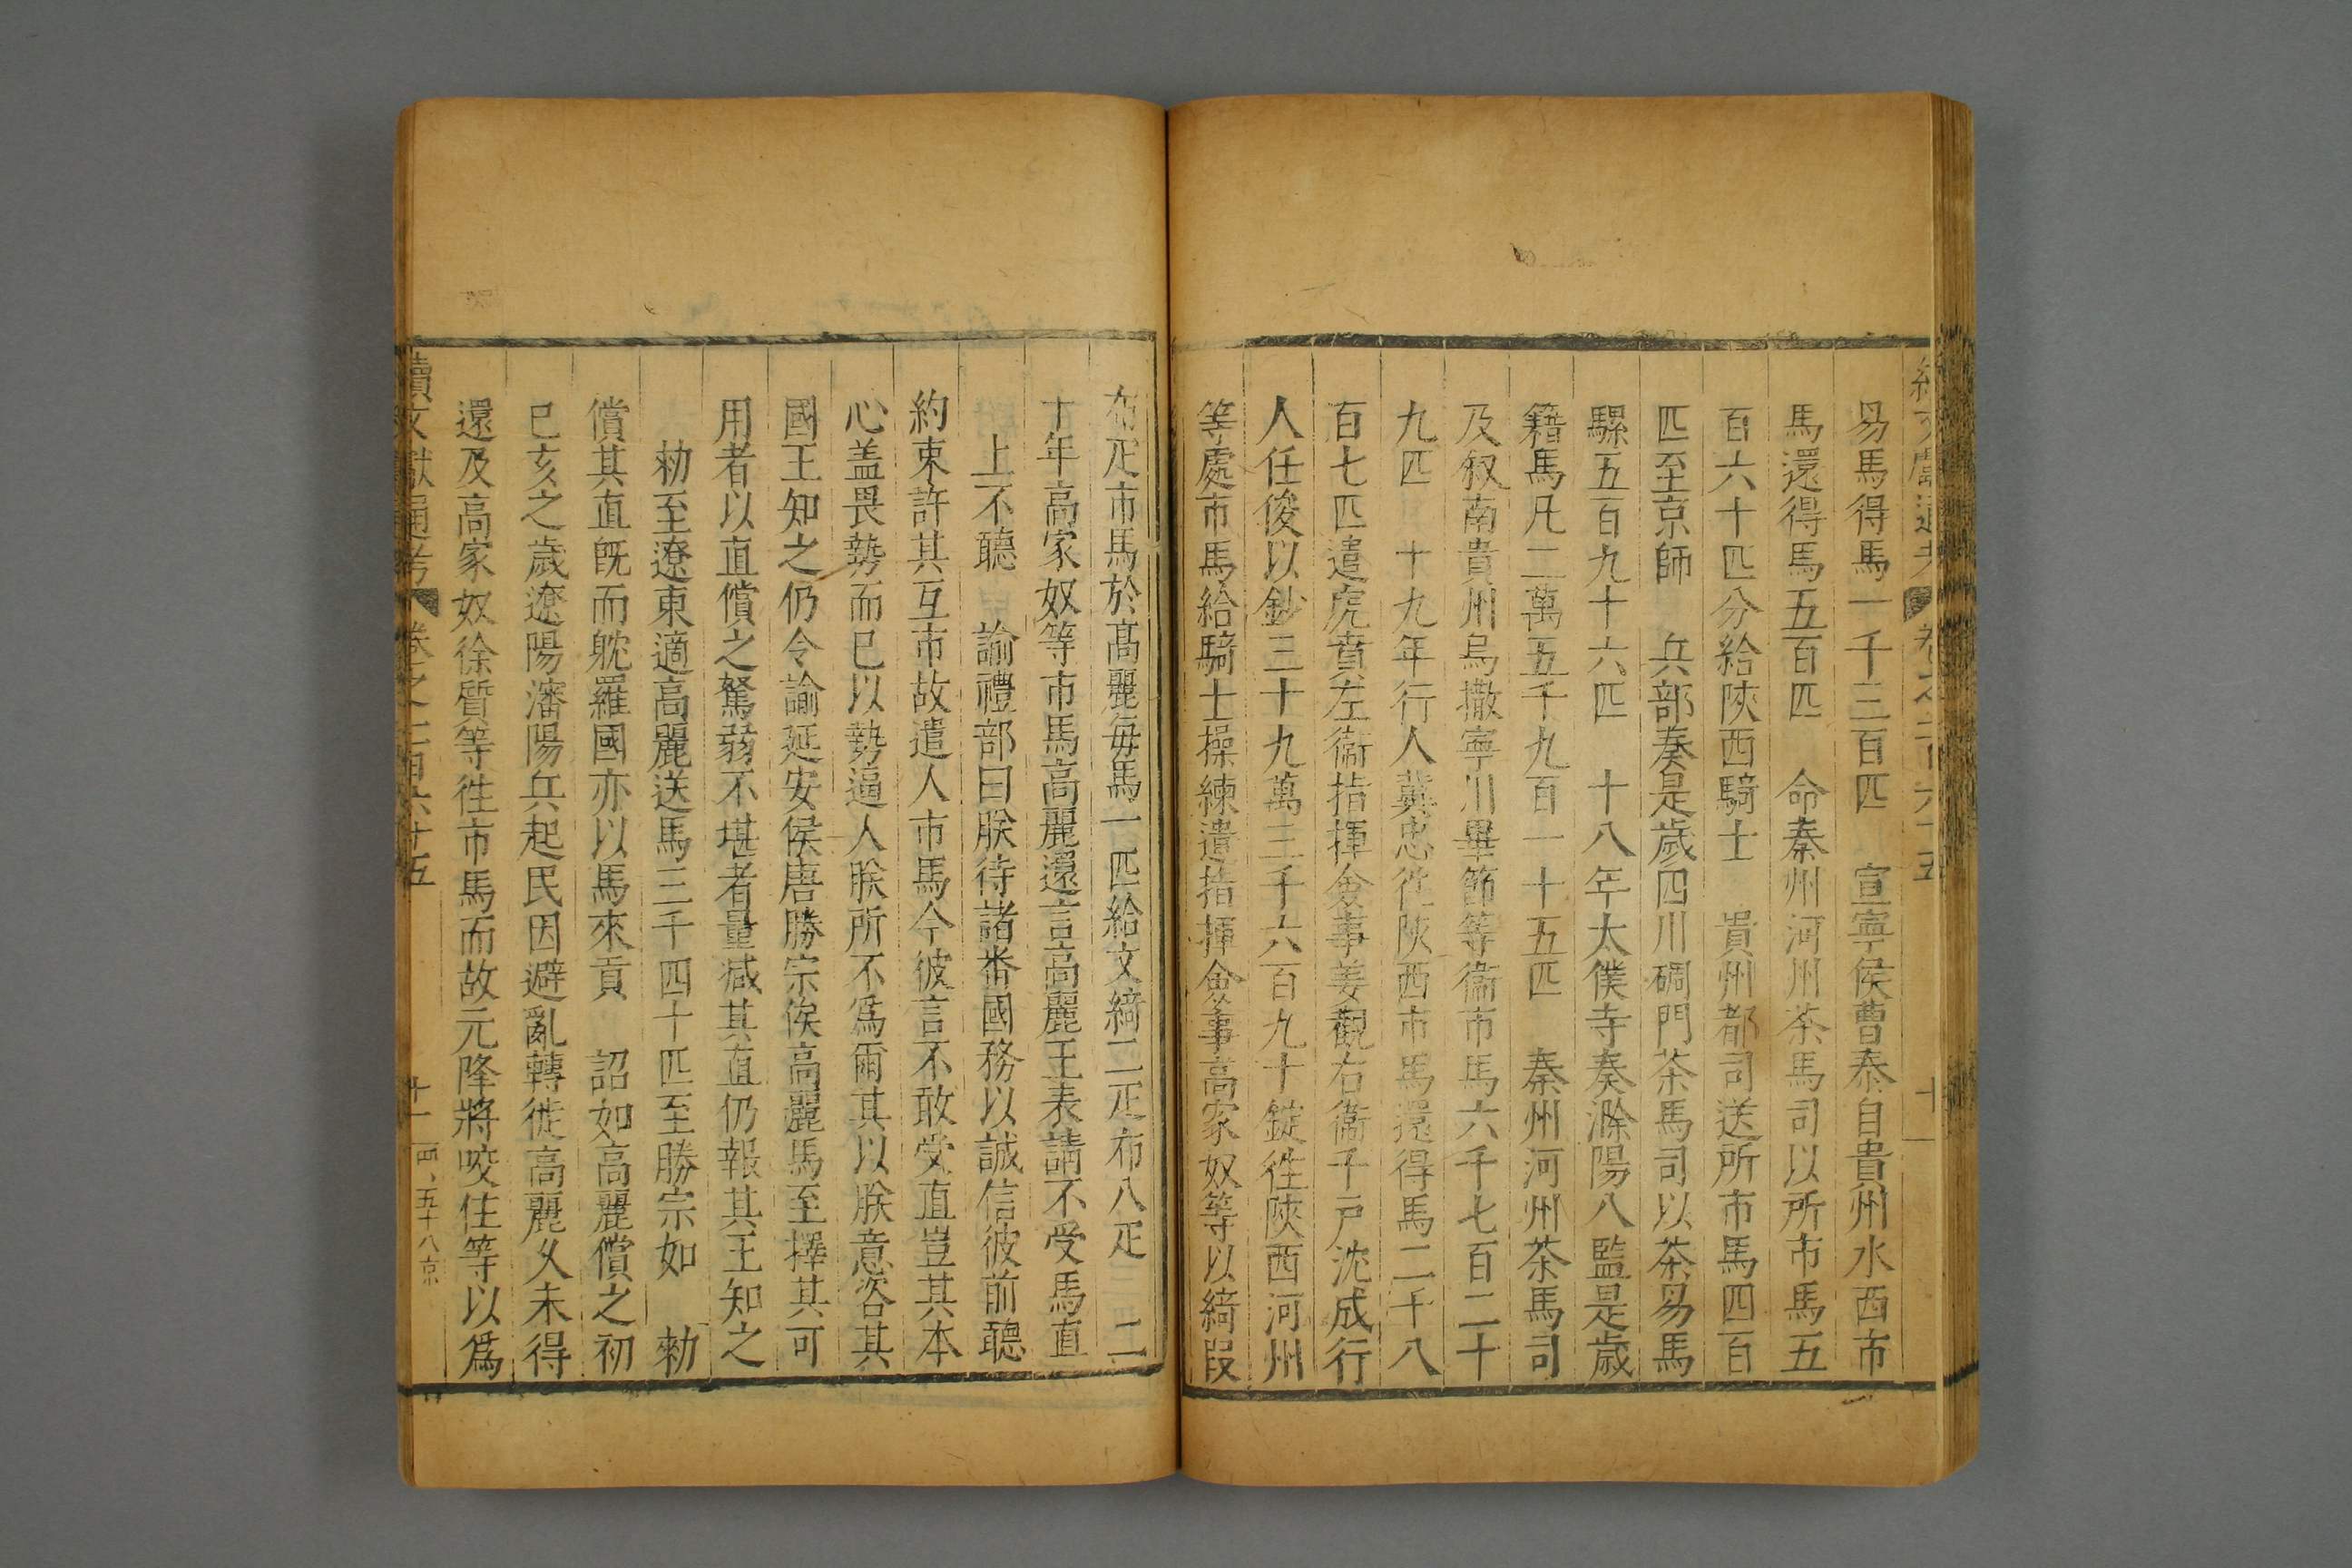 易馬得馬一千三百匹 宣寧侯曹泰自貴州水西市
馬還得馬五百匹 命秦州河州茶馬司以所市馬五
百六十匹分給陝西騎士 貴州都司送所市馬四百
匹至京師 兵部奏是歲四川碉門茶馬司以茶易馬
騾五百九十六匹 十八年太僕寺奏滁陽八監是歲
籍馬凡二萬五千九百一十五匹 秦州河州茶馬司
及叙南貴州烏撒寧川畢節等衞市馬六千七百二十
九匹 十九年行人冀忠徃陝西市馬還得馬二千八
百七匹遣虎賁左衞指揮僉事姜觀右衞千戸沈成行
人任俊以鈔三十九萬三千六百九十錠徃陝西河州
等處市馬給騎士操練遣指揮僉事高家奴等以綺叚
布疋市馬於高麗每馬一匹給文綺二疋布八疋 二
十年高家奴等市馬高麗還言高麗王表請不受馬直
上不聽 諭禮部曰朕待諸番國務以誠信彼前聽
約束許其互市故遣人市馬今彼言不敢受直豈其本
心盖畏勢而已以勢逼人朕所不為爾其以朕意咨其
國王知之仍令諭延安侯唐勝宗俟高麗馬至擇其可
用者以直償之駑弱不堪者量减其直仍報其王知之
勑至遼東適高麗送馬三千四十匹至勝宗如 勑
償其直旣而躭羅國亦以馬來貢 詔如高麗償之初
已亥之歲遼陽瀋陽兵起民因避亂轉徙高麗久未得
還及高家奴徐質等徃市馬而故元降將咬住等以為
續文獻通考 卷之二百六十五 十一 四 五十八 京